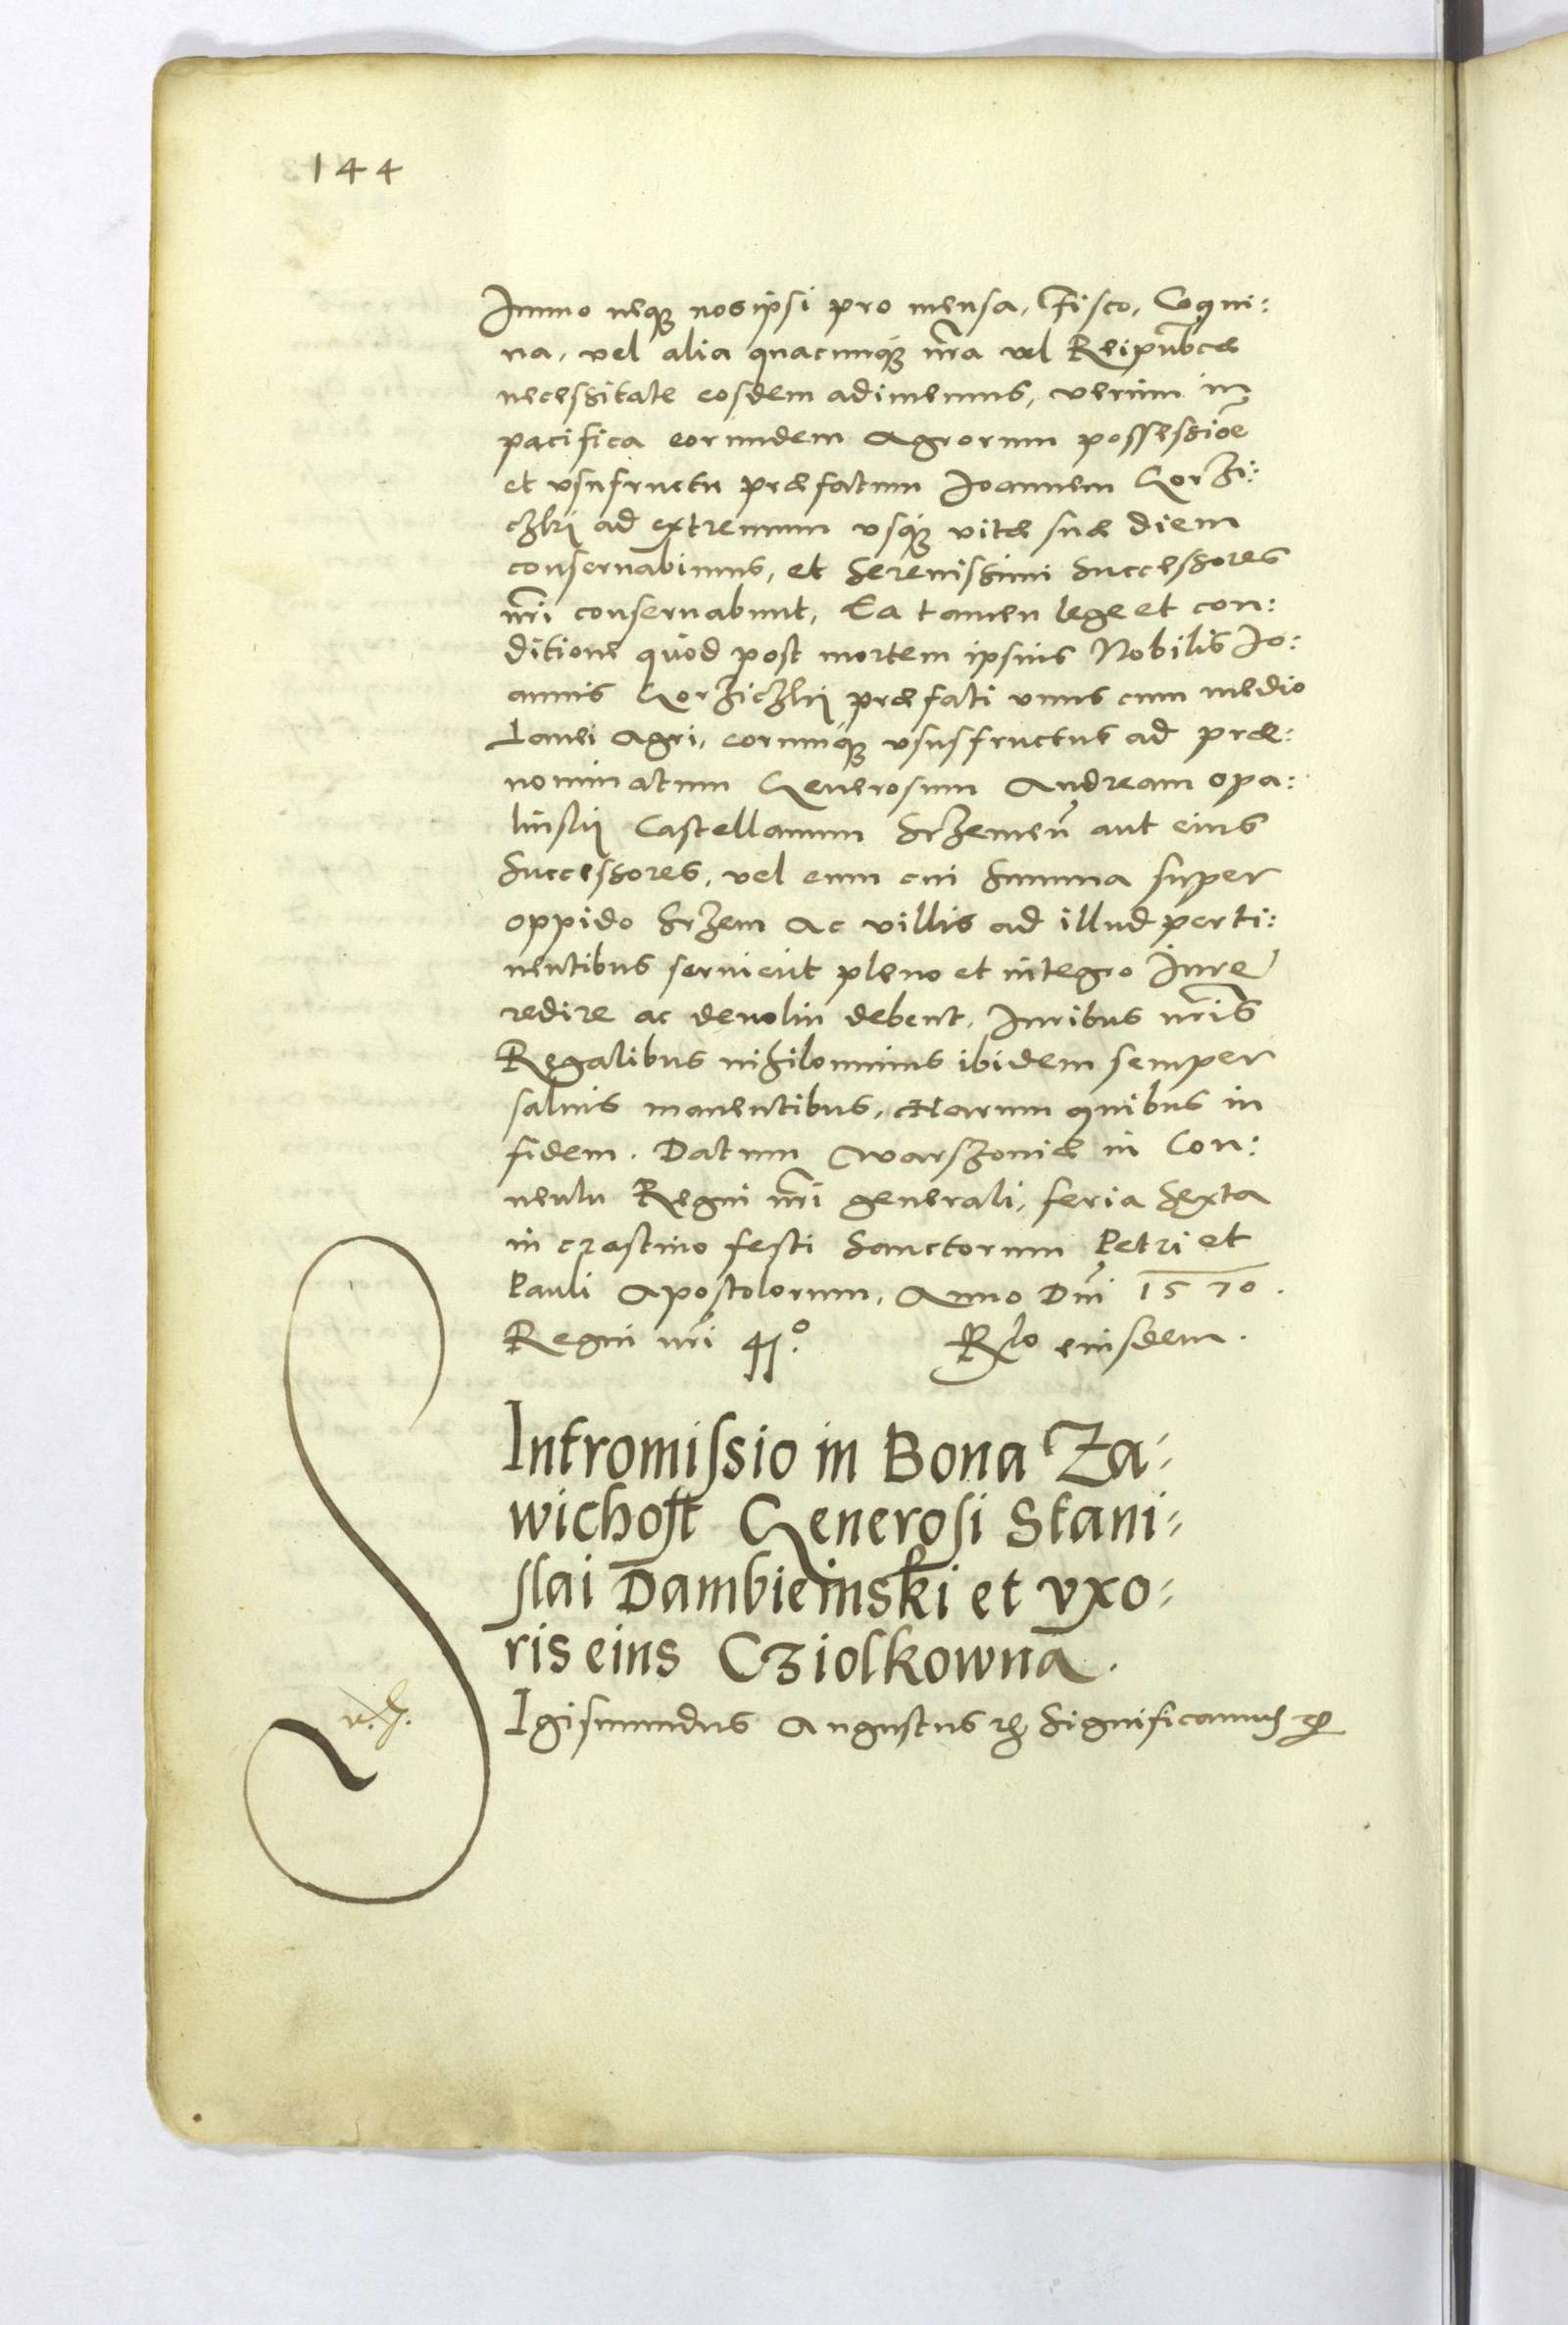 144
Immo neq₃ nos ipsi pro mensa, Fisco, Coqui:
na, vel alia quacunq₃ nr̃a vel Reipub̃cæ
necessitate eosdem adimemus, verum in
pacifica eorundem Agrorum possessiõe
et vsufructu præfatum Joannem Gorzi:
czki ad extremum vsq₃ vitæ suæ diem
conseruabimus, et Serenissimi Successores
nr̃i conseruabunt, Ea tamen lege et con:
ditione quòd post mortem ipsius Nobilis Jo:
annis Gorziczkij præfati vnus cum medio
Lanei Agri, eorumq₃ vsusfructus ad præ:
nominatum Generosum Andream Opa:
linskij Castellanum Srzemeñ aut eius
Successores, vel eum cui Summa super
oppido Srzem Ac villis ad illud perti:
nentibus seruient pleno et integro Jure
redire ac deuolui debent, Juribus nr̃is
Regalibus nihilominus ibidem semper
saluis manentibus, Harum quibus in
fidem. Datum Warszouiæ in Con:
uentu Regni nr̃i generali, feria Sexta
in crastino festi Sanctorum Petri et
Pauli Apostolorum, Anno Dñi 1570.
Regni nr̃i 41º. Rlo eiusdem.
Intromissio in Bona Za⸗
wichost Generosi Stani⸗
slai Dambieinski et vxo⸗
ris eius Cziolkowna.
SIgismundus Augustus Significamus